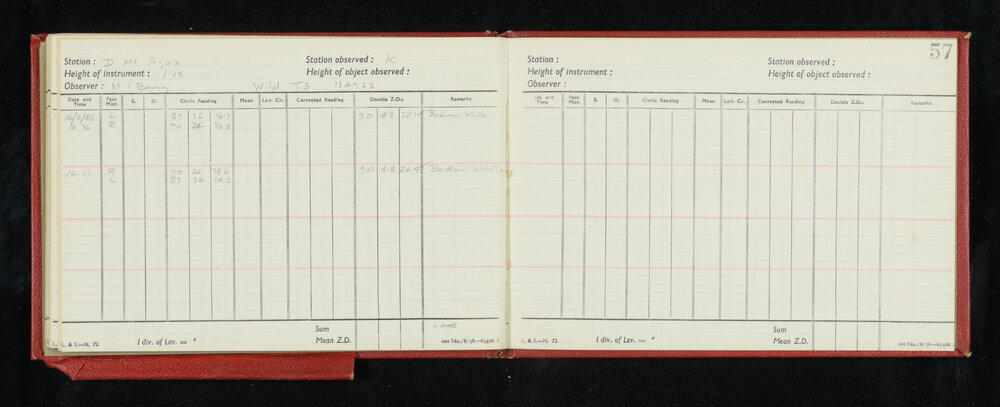 Station : D. Mt Ajax Station observed : K
Height of instrument : 1.15 Height of object observed :
Observer : M I Wild T3 134922
Date and Time Face Micr. E. O. Circle Reading Mean Lev. Cn. Corrected Reading Double Z.D.s Remarks
16/2/85 L 89 36 90 48 Bottom White.
16 36 R 90 24
16 R 90 24 90 48 24.4 Bottom White
L 89 36
Sum
L. & S.—N. 72 1 div. of Lev. = " Mean Z.D. 200 bks./6/56—65466
57
Station : Station observed :
Height of instrument : Height of object observed :
Observer :
Date and Time Face Micr. E. O. Circle Reading Mean Lev. Cn. Corrected Reading Double Z.D.s Remarks
Sum
L. & S.—N. 72 1 div. of Lev. = " Mean Z.D. 200 bks./6/56—65466